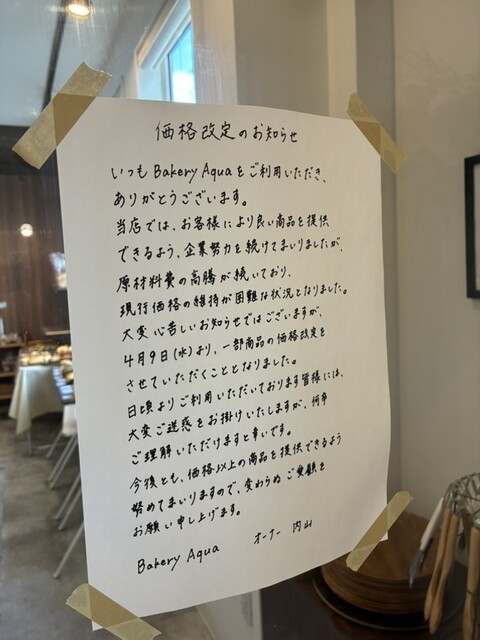 価格改定のお知らせ
いつも Bakery Aqua をご利用いただき、
ありがとうございます。
当店では、お客様により良い商品を提供
できるよう、企業努力を続けてまいりましたが、
原材料費の高騰が続いており、
現行価格の維持が困難な状況となりました。
大変心苦しいお知らせではございますが、
4月9日(水)より、一部商品の価格改定を
させていただくこととなりました。
日頃よりご利用いただいております皆様には、
大変ご迷惑をお掛けいたしますが、何卒
ご理解いただけますと幸いです。
今後とも、価格以上の商品を提供できるよう
努めてまいりますので、変わらぬご愛顧を
お願い申し上げます。
Bakery Aqua オーナー 内山